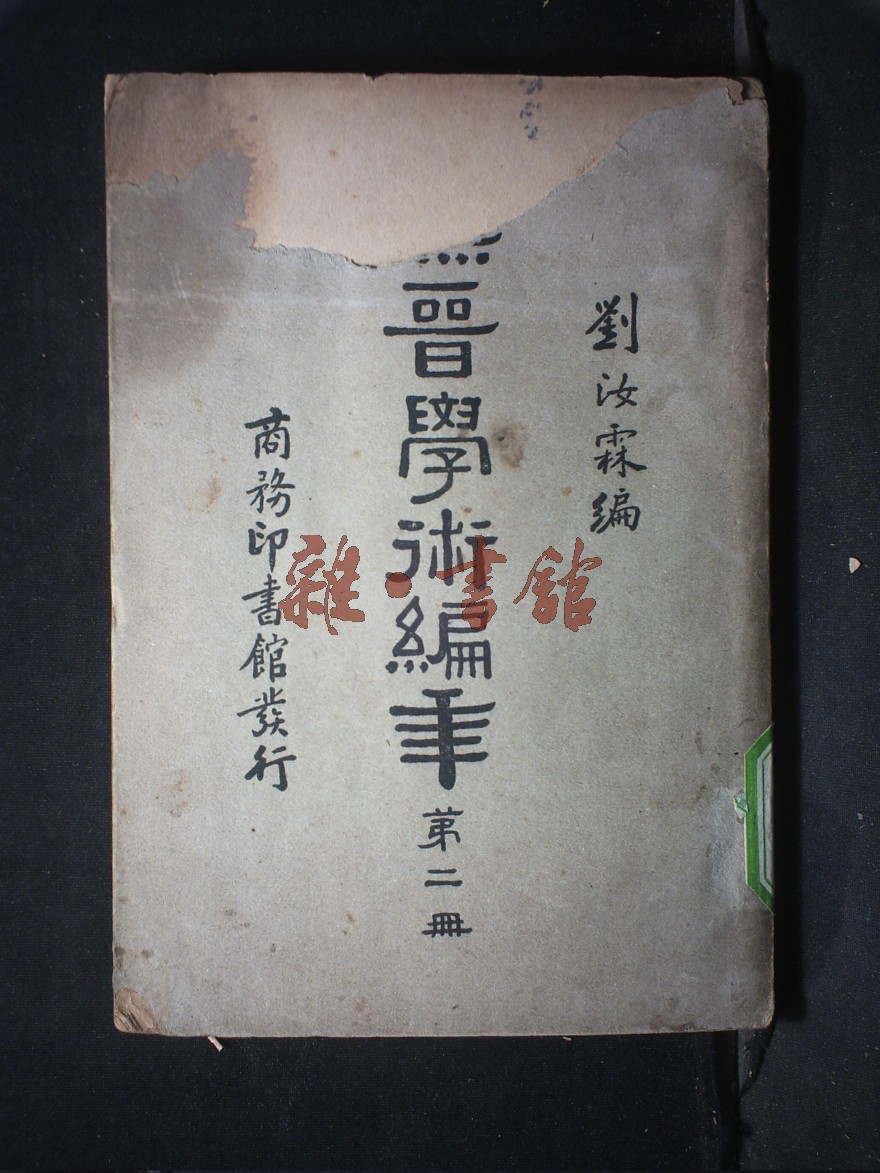 劉汝霖編
晉學術編年 第二冊
商務印書館發行
雜·書館